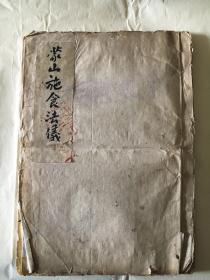 蒙山施食法儀